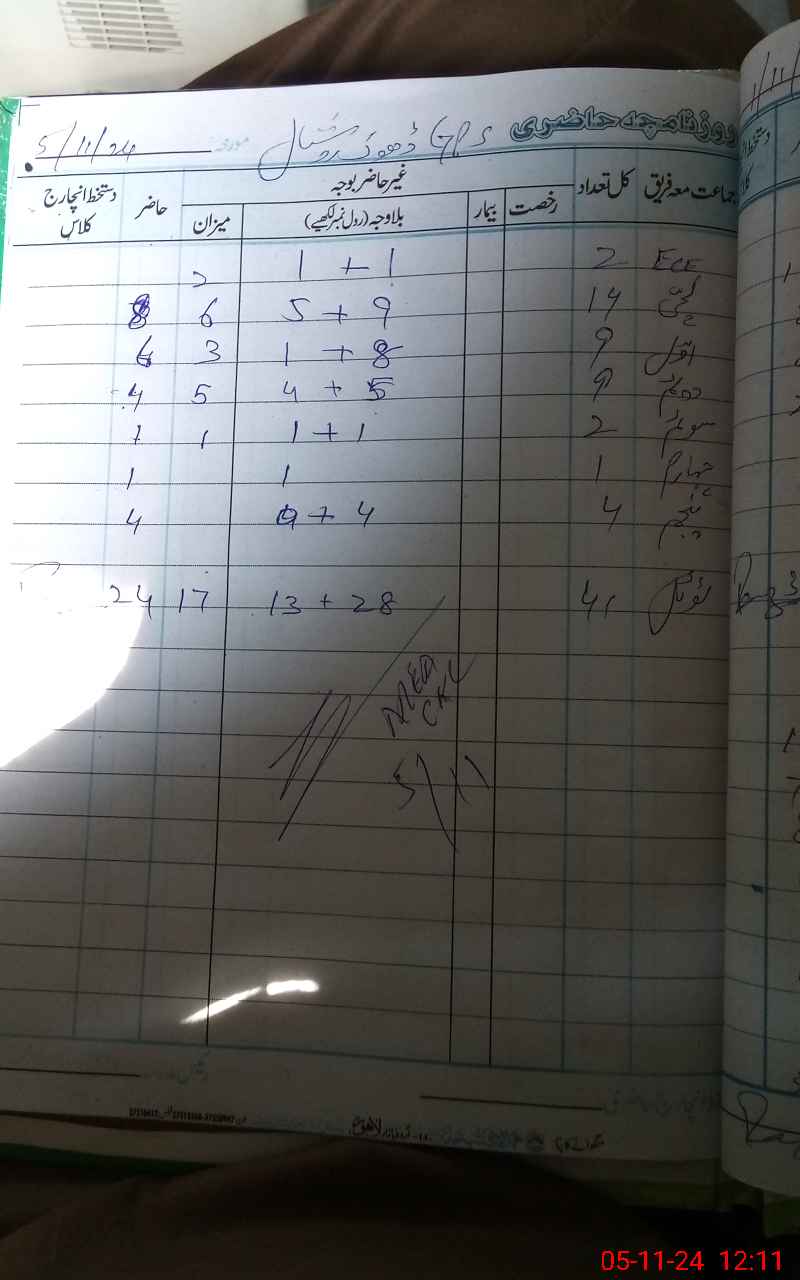 روزنامچہ حاضری GPS ڈھوک روشنال مورخہ 5/11/24
جماعت معہ فریق کل تعداد غیر حاضر بوجہ حاضر دستخط انچارج کلاس
رخصت بیمار بلاوجہ (رول نمبر لکھیے) میزان
ECE 2 1 + 1 2
کچی 14 5 + 9 6 8
اول 9 1 + 8 3 6
دوئم 9 4 + 5 5 4
سوئم 2 1 + 1 1 1
چہارم 1 1 1
پنجم 4 0 + 4 4
ٹوٹل 41 13 + 28 17 24
5/11
05-11-24 12:11